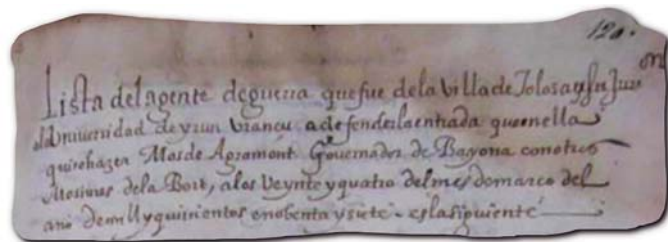 120.
Lista dela gente de guerra que fue dela Villa de Tolosa y su Juron
ala Universidad de yrun Vrançu a defender la entrada que en ella
quiso hazer Mos de Agramont Governador de Bayona con otros
Mosiures dela Bort, a los Veynte y quatro del mes de março del
año de mill y quinientos e nobenta y siete - es la siguiente